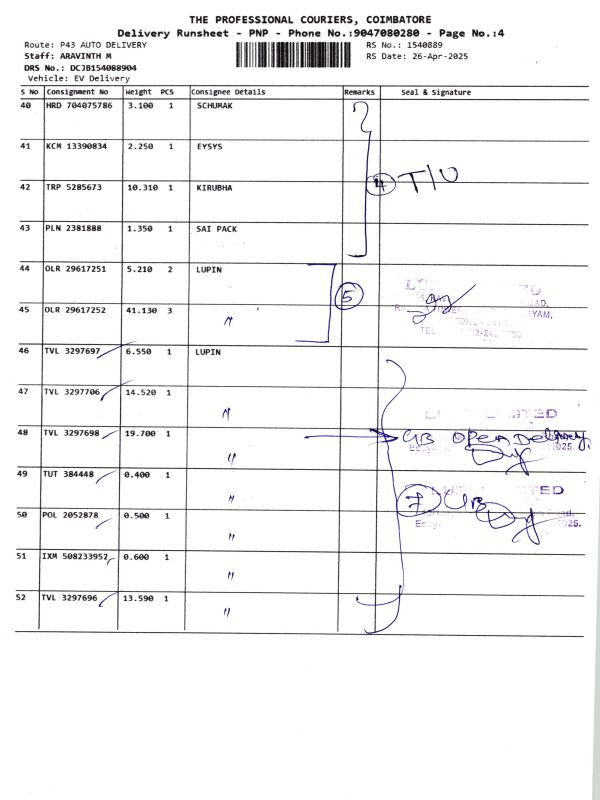 THE PROFESSIONAL COURIERS, COIMBATORE
Delivery Runsheet - PNP - Phone No.:9047080280 - Page No.:4
Route: P43 AUTO DELIVERY RS No.: 1540889
Staff: ARAVINTH M RS Date: 26-Apr-2025
DRS No.: DCJB1540888904
Vehicle: EV Delivery
S No Consignment No Weight PCS Consignee Details Remarks Seal & Signature
40 HRD 704075786 3.100 1 SCHUMAK
41 KCM 13390834 2.250 1 EYSYS
42 TRP 5285673 10.310 1 KIRUBHA 4 T/U
43 PLN 2381888 1.350 1 SAI PACK
44 OLR 29617251 5.210 2 LUPIN
5
45 OLR 29617252 41.130 3 "
46 TVL 3297697 6.550 1 LUPIN
47 TVL 3297706 14.520 1 "
LIMITED
48 TVL 3297698 19.700 1 " UB Open Delivery
49 TUT 384448 0.400 1 "
7 UB
50 POL 2052878 0.500 1 "
51 IXM 508233952 0.600 1 "
52 TVL 3297696 13.590 1 "